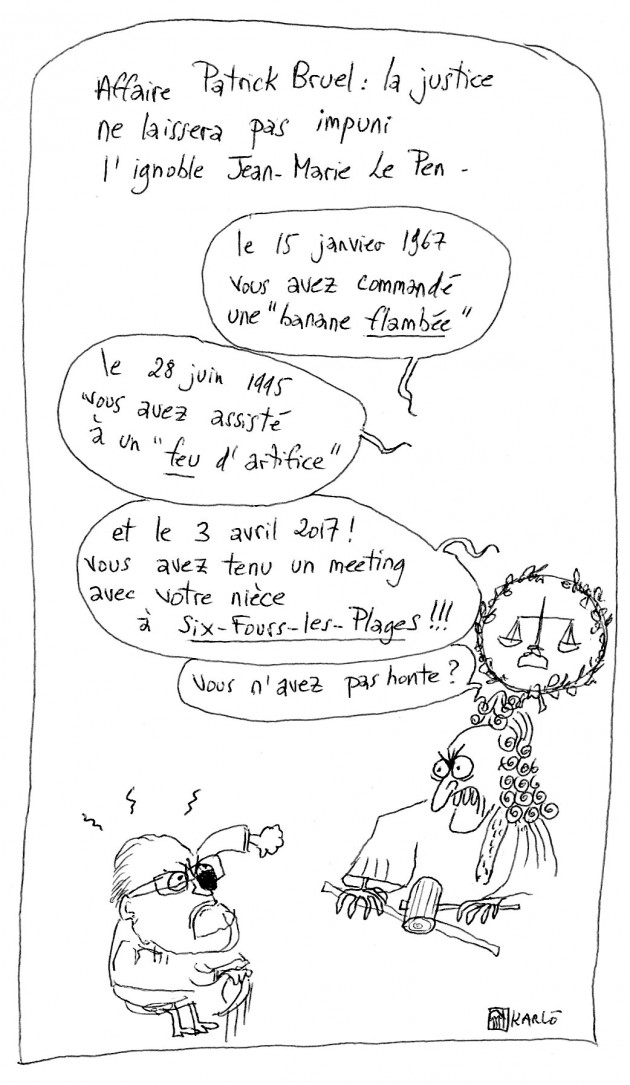 Affaire Patrick Bruel : la justice
ne laissera pas impuni
l'ignoble Jean-Marie Le Pen -
le 15 janvier 1967
vous avez commandé
une "banane flambée"
le 28 juin 1995
vous avez assisté
à un "feu d'artifice"
et le 3 avril 2017 !
vous avez tenu un meeting
avec votre nièce
à Six-Fours-les-Plages !!!
vous n'avez pas honte ?
KARLÔ